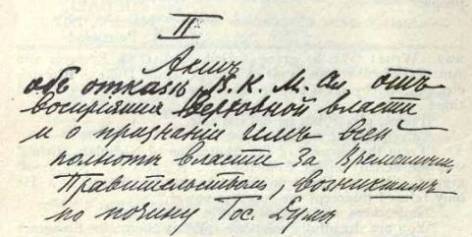 II
Актъ
объ отказѣ В. К. М. Ал отъ
воспріятія Верховной власти
и о признаніи имъ всей
полноты власти за Временнымъ
Правительствомъ, возникшимъ
по почину Гос. Думы